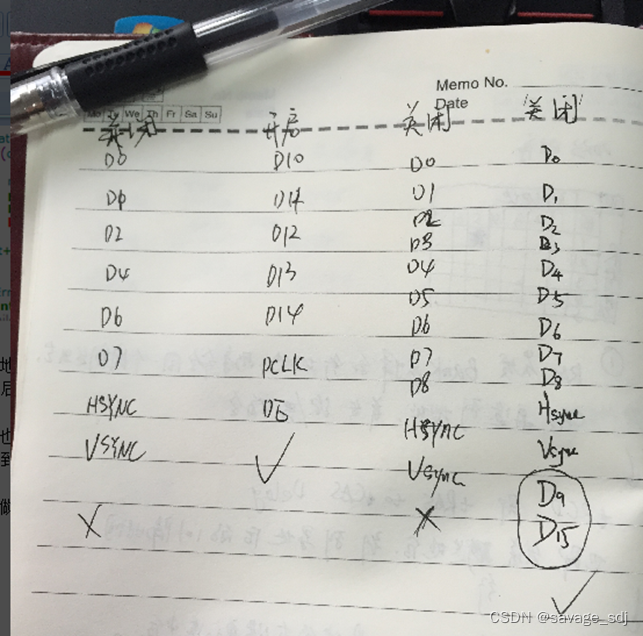 Memo No.
Date
Mo Tu We Th Fr Sa Su
关闭 开启 关闭 关闭
D0 D10 D0 D0
D1 D11 D1 D1
D2 D12 D2 D2
D3 D3
D4 D13 D4 D4
D5 D5
D6 D14 D6 D6
D7 PCLK D7 D7
D8 D8
HSYNC DE HSYNC Hsync
VSYNC ✓ VSYNC Vsync
X X D9
D15
✓
CSDN @savage_sdj